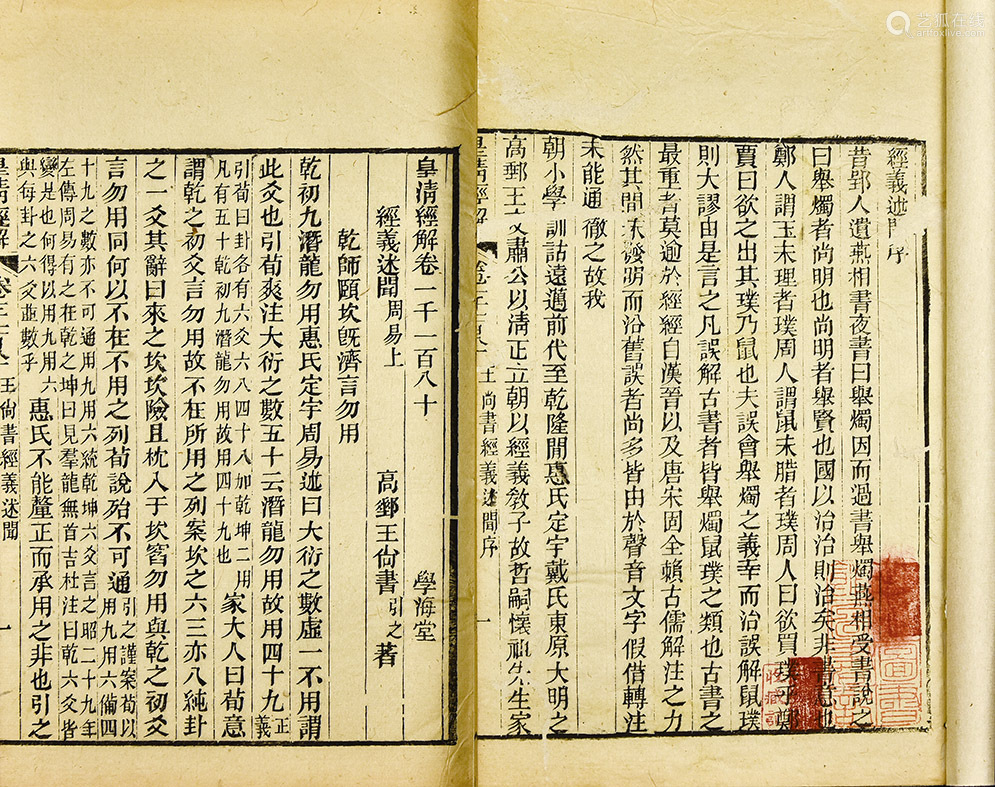 經義述聞序
昔郢人遺燕相書夜書曰舉燭因而過書舉燭燕相受書說之
曰舉燭者尚明也尚明者舉賢也國以治治則治矣非書意也
鄭人謂玉未理者璞周人謂鼠未腊者璞周人曰欲買璞乎鄭
賈曰欲之出其璞乃鼠也夫誤會舉燭之義幸而治誤解鼠璞
則大謬由是言之凡誤解古書者皆舉燭鼠璞之類也古書之
最重者莫逾於經經自漢晉以及唐宋固全賴古儒解注之力
然其間未發明而沿舊誤者尚多皆由於聲音文字假借轉注
未能通徹之故我
朝小學訓詁遠邁前代至乾隆間惠氏定宇戴氏東原大明之
高郵王文肅公以清正立朝以經義教子故哲嗣懷祖先生家
皇清經解 王尚書經義述聞序 一
皇清經解卷一千一百八十 學海堂
經義述聞周易上 高郵王尙書引之著
乾師頤坎旣濟言勿用
乾初九潛龍勿用惠氏定宇周易述曰大衍之數虛一不用謂
此爻也引荀爽注大衍之數五十云潛龍勿用故用四十九正義
引荀曰卦各有六爻六八四十八加乾坤二用
凡有五十乾初九潛龍勿用故用四十九也家大人曰荀意
謂乾之初爻言勿用故不在所用之列案坎之六三亦八純卦
之一爻其辭曰來之坎坎險且枕入于坎窞勿用與乾之初爻
言勿用同何以不在不用之列荀說殆不可通引之謹案荀以
用九用六備四
十九之數亦不可通用九用六統乾坤六爻言之昭二十九年
左傳周易有之在乾之坤曰見羣龍無首吉杜注曰乾六爻皆
變是也何得以用九用六
與每卦之六爻並數乎惠氏不能釐正而承用之非也引之
皇清經解 王尙書經義述聞 一
收藏記
艺狐在线
artfoxlive.com